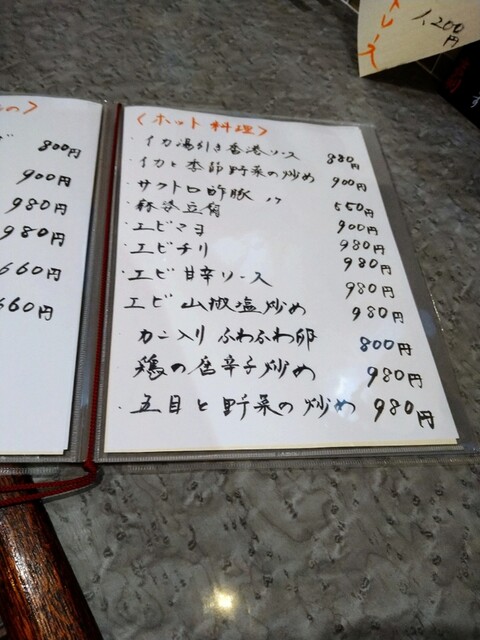 の〉
800円
900円
980円
980円
660円
660円
〈ホット料理〉
・イカ湯引き香港ソース 880円
・イカと季節野菜の炒め 900円
・サクトロ酢豚 〃 550円
・麻婆豆腐 900円
・エビマヨ 980円
・エビチリ 980円
・エビ甘辛ソース 980円
エビ山椒塩炒め 980円
カニ入りふわふわ卵 800円
鶏の唐辛子炒め 980円
・五目と野菜の炒め 980円
1,200円